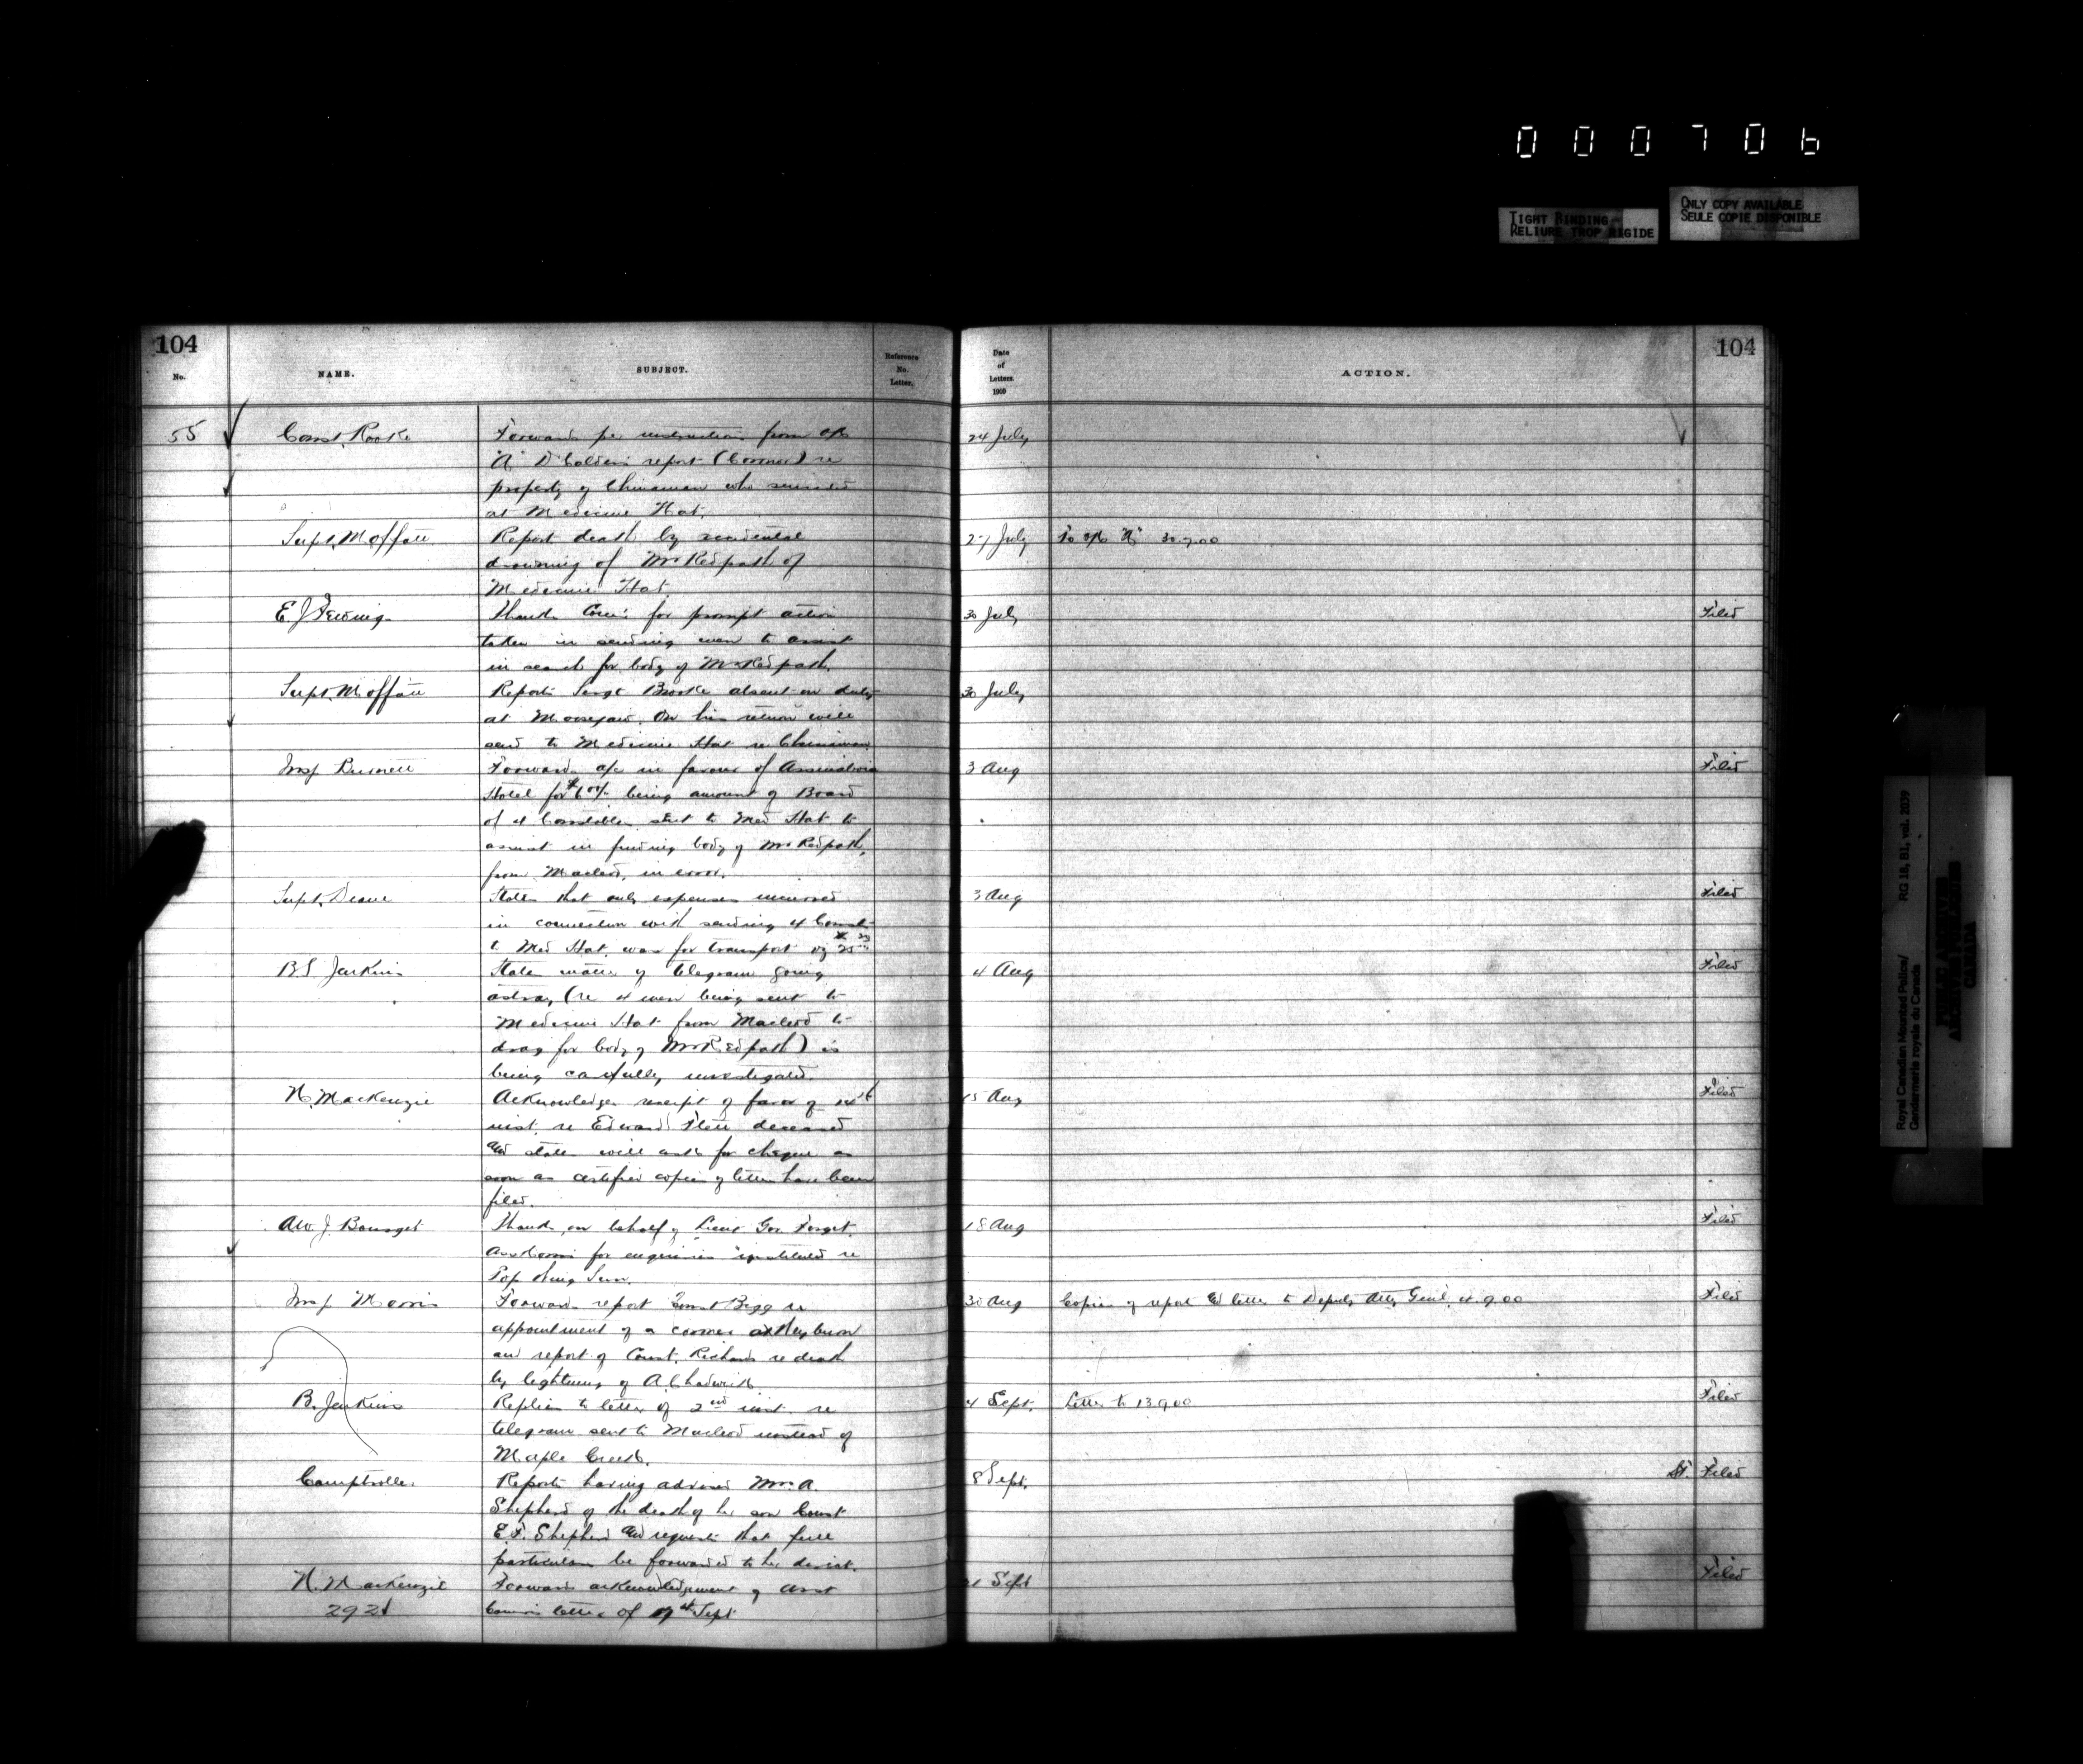 000706
TIGHT BINDING
RELIURE TROP RIGIDE
ONLY COPY AVAILABLE
SEULE COPIE DISPONIBLE
104
No.
NAME.
SUBJECT.
Reference
No.
Letter.
Date
of
Letters.
1900
ACTION.
104
55 Const. Rooke Forwards per instructions from o/c 24 July
"A" D report (Coroner) re
property of Chinaman who suicided
at Medicine Hat.
Supt. Moffatt Report death by accidental 27 July To o/c "A" 30.7.00
drowning of Mr Redpath of
Medicine Hat.
E. J. Fewings Thanks Comr. for prompt action 30 July Filed
taken in sending men to assist
in search for body of Mr Redpath.
Supt. Moffatt Reports Sergt Brooke absent on duty 30 July
at Moosejaw. On his return will
send to Medicine Hat re Chinaman
Insp Burnett Forwards a/c in favour of Assiniboia 3 Aug Filed
Hotel for being amount of Board
of 4 Constables sent to Med Hat to
assist in finding body of Mr Redpath,
from Macleod, in error.
Supt. Deane States that only expenses incurred 3 Aug Filed
in connection with sending 4 Consts
to Med Hat. was for transport viz
B.S. Jenkins States matter of telegram going 4 Aug Filed
astray (re 4 men being sent to
Medicine Hat from Macleod to
drag for body of Mr Redpath) is
being carefully investigated.
N. MacKenzie Acknowledges receipt of favor of 14th 15 Aug Filed
inst. re Edward Flett deceased
and states will ask for cheque as
soon as certified copies of letters have been
filed.
Thanks on behalf of Lieut Gov Forget. 18 Aug Filed
Asst Comr for enquiries instituted re
Insp Morris Forwards report Const Begg re 30 Aug Copies of report and letter to Deputy Atty Genl. 4.9.00 Filed
appointment of a coroner at Weyburn
and report of Const. Richards re death
by lightning of A. Chadwick
B. Jenkins Replies to letter of 2nd inst. re 4 Sept. Letter to 13.9.00 Filed
telegram sent to Macleod instead of
Maple Creek.
Comptroller. Reports having advised Mrs. A. 8 Sept. Filed
Shepherd of the death of her son Const
E.F. Shepherd and requests that full
particulars be forwarded to her direct.
N. MacKenzie Forwards acknowledgement of Asst Sept Filed
292 Comrs letter of Sept
Royal Canadian Mounted Police/ RG 18, B1, vol. 2039
Gendarmerie royale du Canada
PUBLIC ARCHIVES
ARCHIVES PUBLIQUES
CANADA